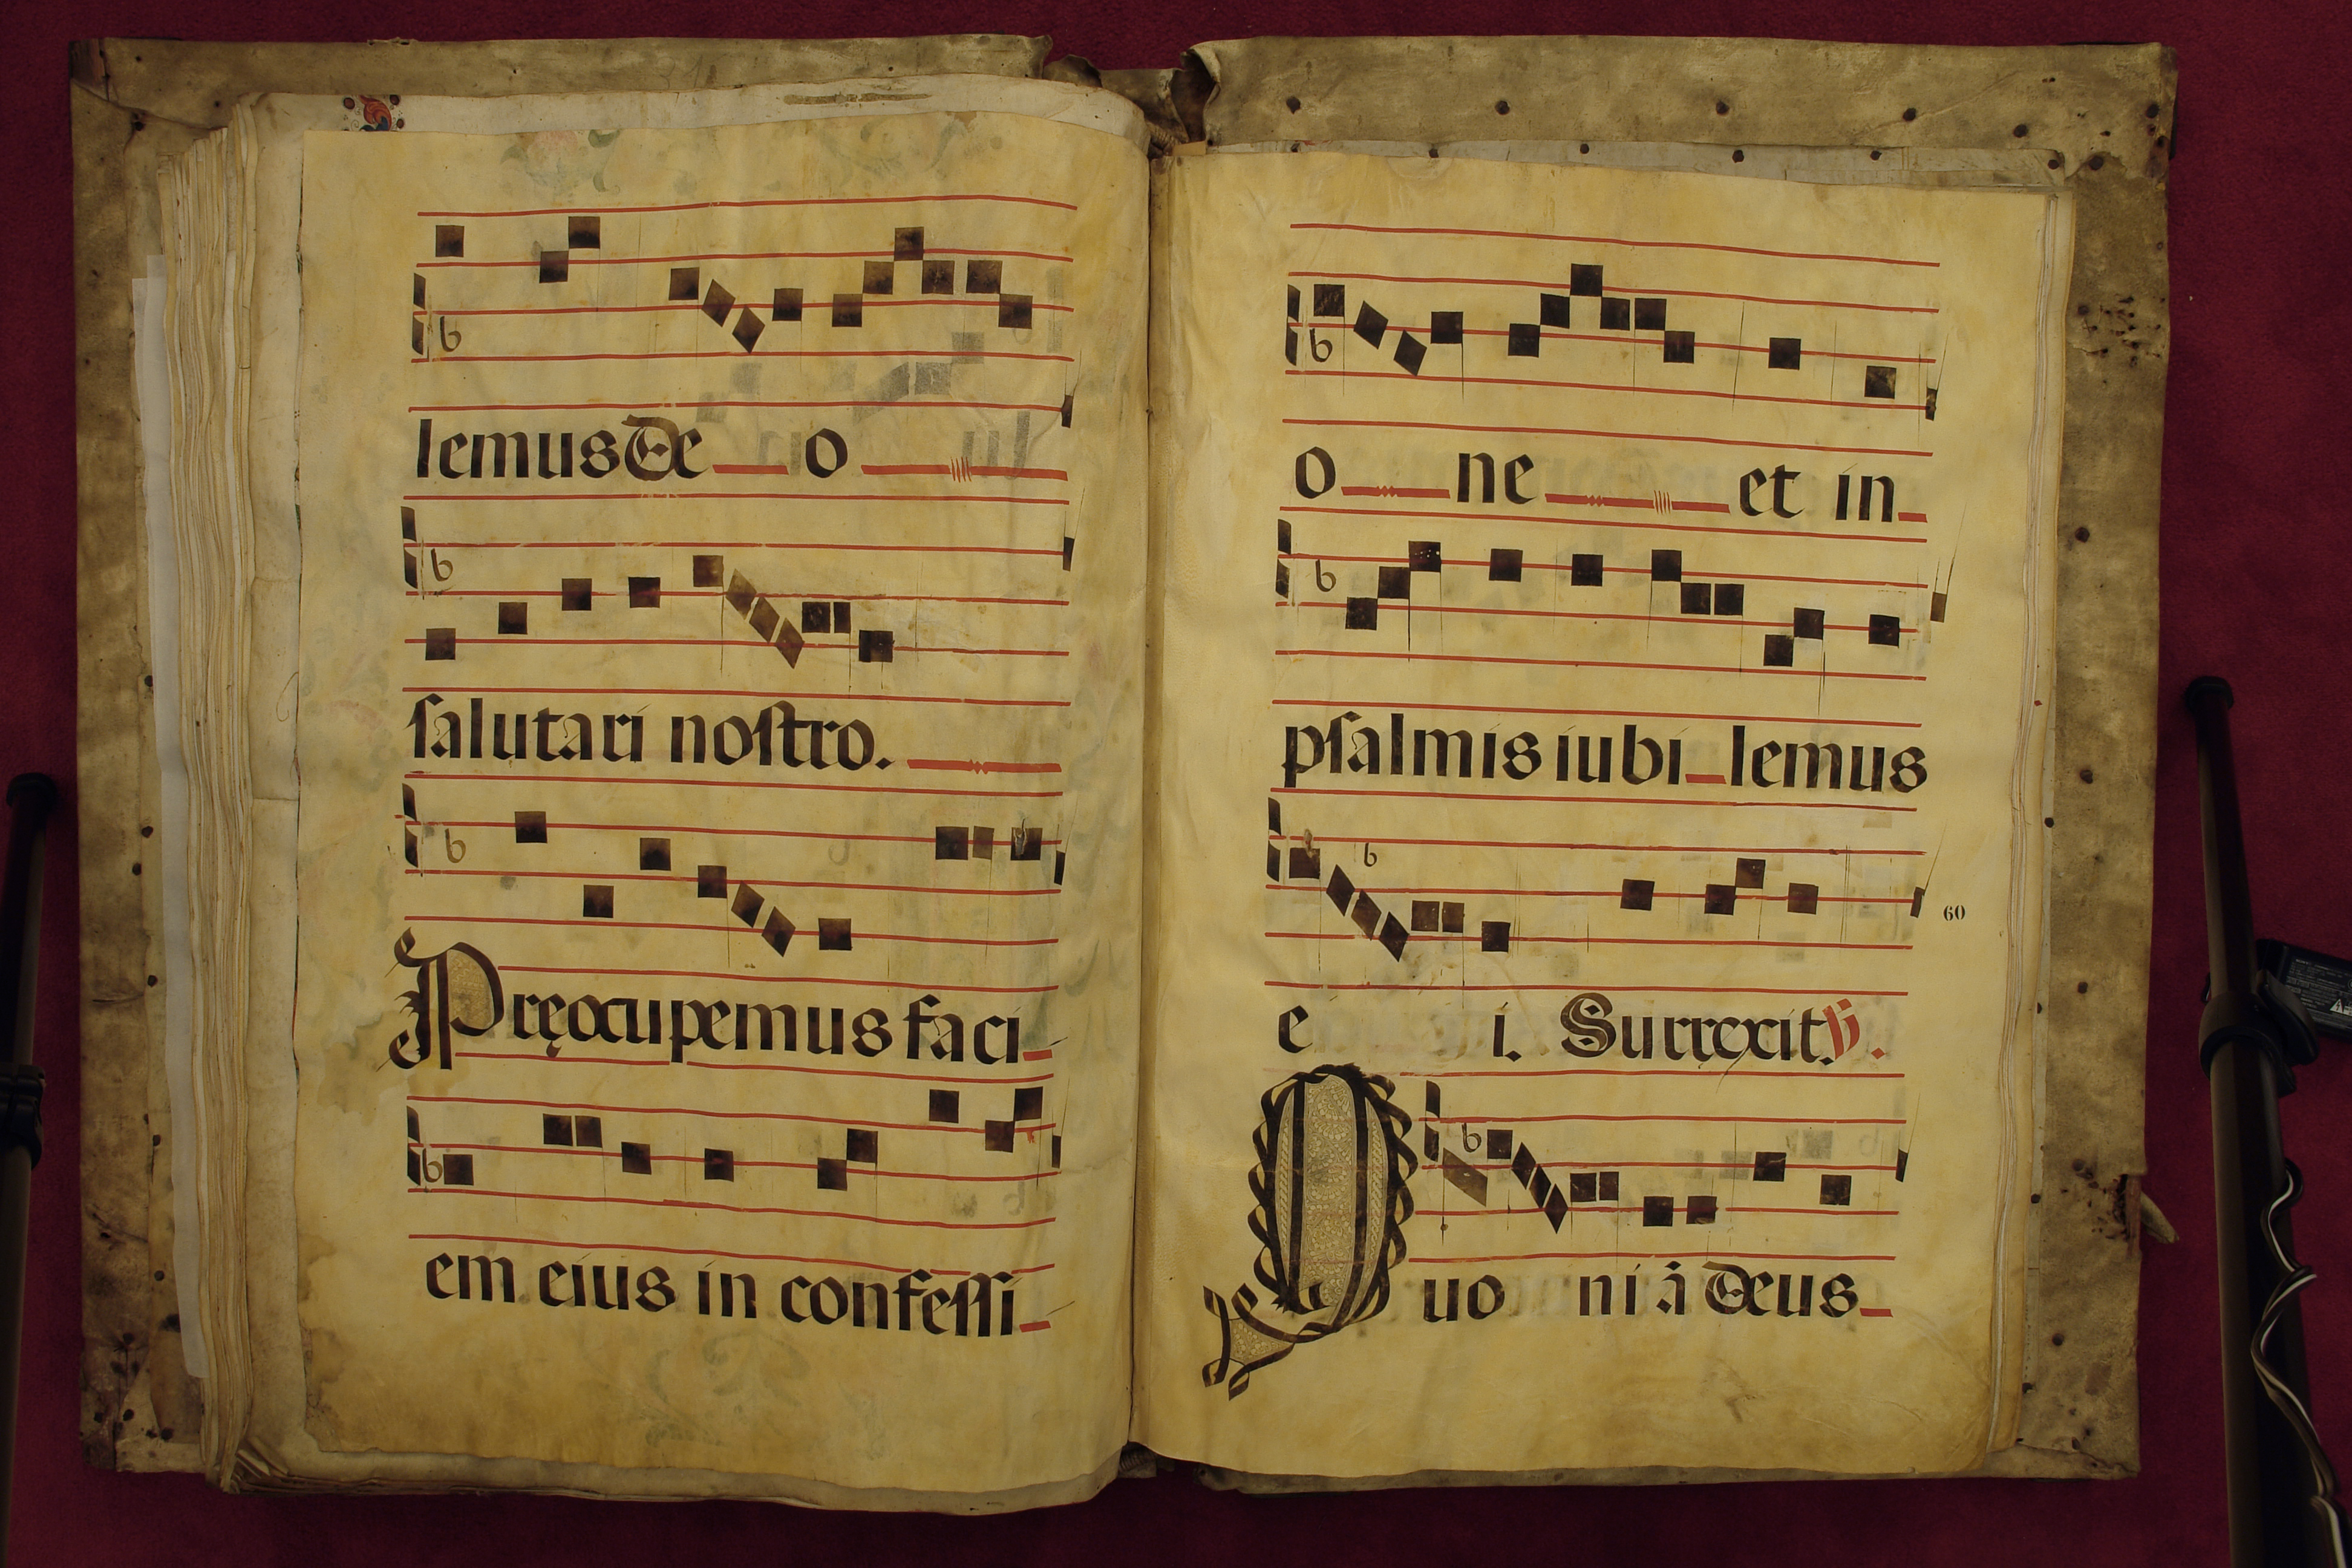 lemus De o
salutari nostro.
Pręocupemus faci
em eius in confessi
o ne et in
psalmis iubi lemus
e i. Surrexit. V.
60
Quo ni ā deus